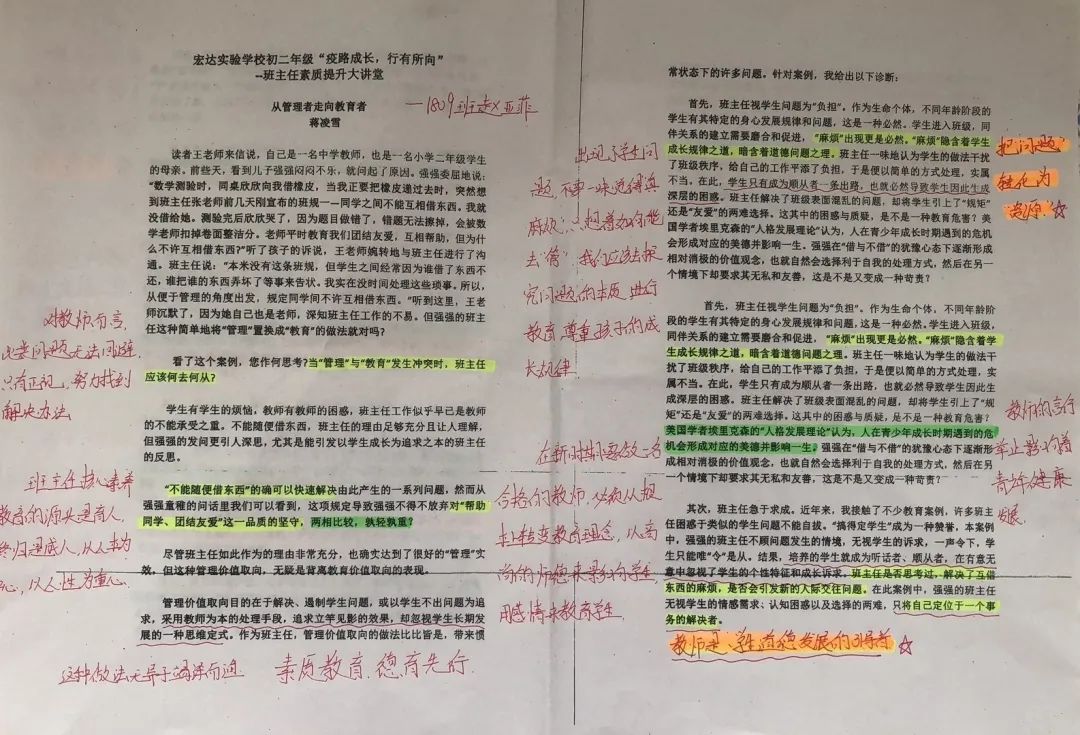 宏达实验学校初二年级“疫路成长，行有所向”
--班主任素质提升大讲堂
从管理者走向教育者
蒋凌雪
—1809班 赵亚菲
读者王老师来信说，自己是一名中学教师，也是一名小学二年级学生
的母亲。前些天，看到儿子强强闷闷不乐，就问起了原因。强强委屈地说：
“数学测验时，同桌欣欣向我借橡皮，当我正要把橡皮递过去时，突然想
到班主任张老师前几天刚宣布的班规——同学之间不能互相借东西。我就
没借给她。测验后欣欣哭了，因为题目做错了，错题无法擦掉，会被数
学老师扣掉卷面整洁分。老师平时教育我们团结友爱，互相帮助，但为什
么不许互相借东西？”听了孩子的诉说，王老师婉转地与班主任进行了沟
通。班主任说：“本来没有这条班规，但学生之间经常因为谁借了东西不
还，谁把谁的东西弄坏了等事来告状。我实在没时间处理这些琐事。所以，
从便于管理的角度出发，规定同学间不许互相借东西。”听到这里，王老
师沉默了，因为她自己也是老师，深知班主任工作的不易。但强强的班主
任这种简单地将“管理”置换成“教育”的做法就对吗？
看了这个案例，您作何思考？当“管理”与“教育”发生冲突时，班主任
应该何去何从？
学生有学生的烦恼，教师有教师的困惑，班主任工作似乎早已是教师
的不能承受之重。不能随便借东西，班主任的理由足够充分且让人理解，
但强强的发问更引人深思，尤其是能引发以学生成长为追求之本的班主任
的反思。
“不能随便借东西”的确可以快速解决由此产生的一系列问题，然而从
强强童稚的问话里我们可以看到，这项规定导致强强不得不放弃对“帮助
同学、团结友爱”这一品质的坚守，两相比较，孰轻孰重？
尽管班主任如此作为的理由非常充分，也确实达到了很好的“管理”实
效，但这种管理价值取向，无疑是背离教育价值取向的表现。
管理价值取向目的在于解决、遏制学生问题，或以学生不出问题为追
求，采用教师为本的处理手段，追求立竿见影的效果，却忽视学生长期发
展的一种思维定式。作为班主任，管理价值取向的做法比比皆是，带来惯
对教师而言，
此类问题无法回避，
只有正视，努力找到
解决办法
班主任核心素养
教育的源头是育人，
终归是成人，以人为
心，以人性为重心。
这种做法无异于竭泽而渔
素质教育，德育先行
常状态下的许多问题。针对案例，我给出以下诊断：
首先，班主任视学生问题为“负担”。作为生命个体，不同年龄阶段的
学生有其特定的身心发展规律和问题，这是一种必然。学生进入班级，同
伴关系的建立需要磨合和促进，“麻烦”出现更是必然。“麻烦”隐含着学生
成长规律之道，暗含着道德问题之理。班主任一味地认为学生的做法干扰
了班级秩序，给自己的工作平添了负担，于是便以简单的方式处理，实属
不当。在此，学生只有成为顺从者一条出路，也就必然导致学生因此生成
深层的困惑。班主任解决了班级表面混乱的问题，却将学生引上了“规矩”
还是“友爱”的两难选择。这其中的困惑与质疑，是不是一种教育危害？美
国学者埃里克森的“人格发展理论”认为，人在青少年成长时期遇到的危
机会形成对应的美德并影响一生。强强在“借与不借”的犹豫心态下逐渐形成
相对消极的价值观念，也就自然会选择利于自我的处理方式，然后在另一
个情境下却要求其无私和友善，这是不是又变成一种苛责？
首先，班主任视学生问题为“负担”。作为生命个体，不同年龄阶
段的学生有其特定的身心发展规律和问题，这是一种必然。学生进入班级，
同伴关系的建立需要磨合和促进，“麻烦”出现更是必然。“麻烦”隐含着学
生成长规律之道，暗含着道德问题之理。班主任一味地认为学生的做法干
扰了班级秩序，给自己的工作平添了负担，于是便以简单的方式处理，实
属不当。在此，学生只有成为顺从者一条出路，也就必然导致学生因此生
成深层的困惑。班主任解决了班级表面混乱的问题，却将学生引上了“规
矩”还是“友爱”的两难选择。这其中的困惑与质疑，是不是一种教育危害？
美国学者埃里克森的“人格发展理论”认为，人在青少年成长时期遇到的危
机会形成对应的美德并影响一生。强强在“借与不借”的犹豫心态下逐渐形
成相对消极的价值观念，也就自然会选择利于自我的处理方式，然后在另
一个情境下却要求其无私和友善，这是不是又变成一种苛责？
其次，班主任急于求成。近年来，我接触了不少教育案例，许多班主
任困惑于类似的学生问题不能自拔。“搞得定学生”成为一种赞誉，本案例
中，强强的班主任不顾问题发生的情境，无视学生的诉求，一声令下，学
生只能唯“令”是从。结果，培养的学生就成为听话者、顺从者，在有意无
意中忽视了学生的个性特征和成长诉求，班主任是否思考过，解决了互借
东西的麻烦，是否会引发新的人际交往问题。在此案例中，强强的班主任
无视学生的情感需求、认知困惑以及选择的两难，只将自己定位于一个事
务的解决者。
出现了学生问
题，不要一味觉得真
麻烦，只想着如何能
去“管”，我们应该去探
究问题的本质，进行
教育，尊重孩子的成
长规律
在新时期要做一名
合格的教师，必须从根
本上转变教育理念，以高
尚的师德来影响学生，
用感情来教育学生
把问题
转化为
资源☆
教师的言行
举止影响着
青少年健康
发展
教师是学生道德发展的引导者☆